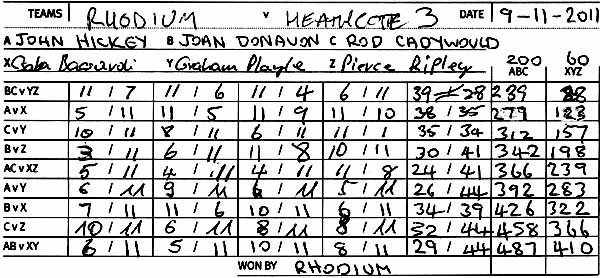 TEAMS RHODIUM V HEATHCOTE 3 DATE 9-11-2011
A JOHN HICKEY B JOAN DONAVON C ROD CADYWOULD
X Y Graham Playle Z Pierce Ripley 200 ABC 60 XYZ
BCvYZ 11 / 7 11 / 6 11 / 4 6 / 11 39 / 28 239 88
AvX 5 / 11 11 / 5 11 / 9 11 / 10 38 / 35 123
CvY 10 / 11 8 / 11 6 / 11 11 / 1 35 / 34 312 157
BvZ 3 / 11 6 / 11 11 / 8 10 / 11 30 / 41 342 198
ACvXZ 5 / 11 4 / 11 4 / 11 11 / 8 24 / 41 366 239
AvY 6 / 11 9 / 11 6 / 11 5 / 11 26 / 44 392 283
BvX 7 / 11 11 / 6 10 / 11 6 / 11 34 / 39 426 322
CvZ 10 / 11 6 / 11 8 / 11 8 / 11 32 / 44 458 366
ABvXY 6 / 11 5 / 11 10 / 11 8 / 11 29 / 44 487 410
WON BY RHODIUM